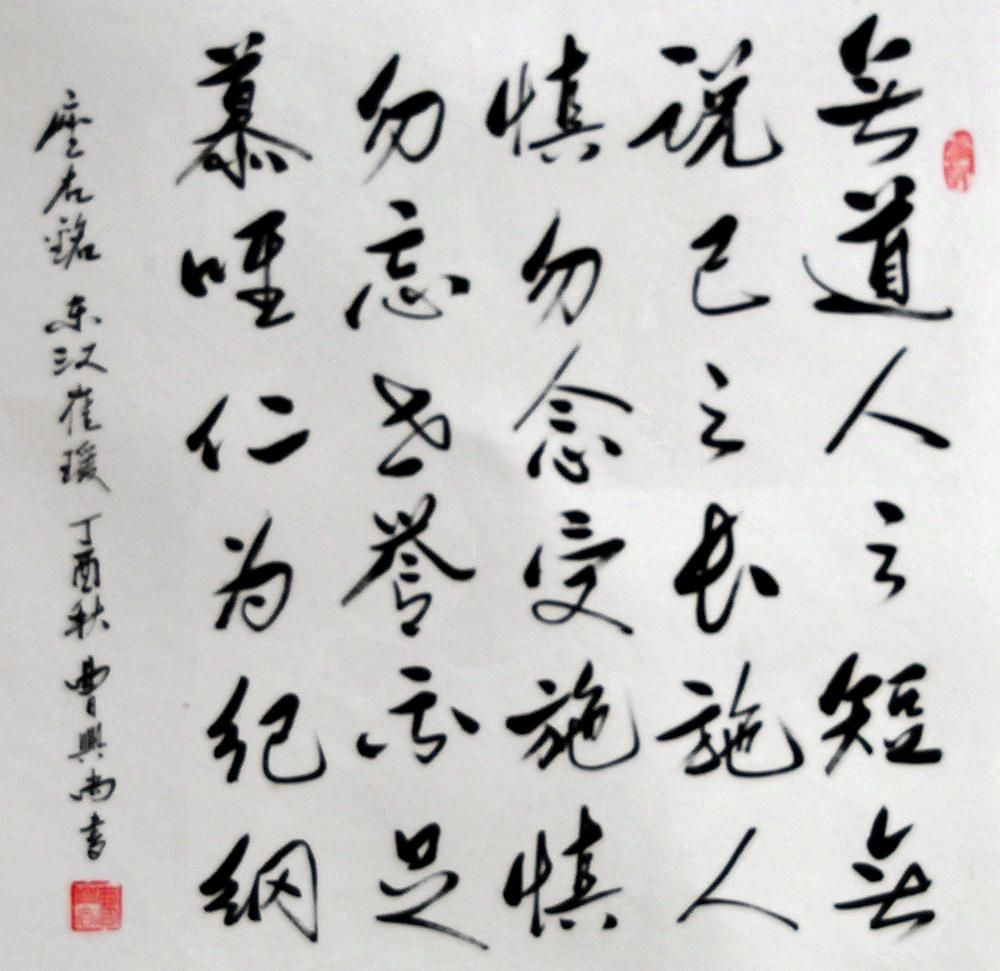 無道人之短無
说己之长施人
慎勿念受施慎
勿忘世誉不足
慕唯仁为纪纲
座右銘 东汉崔瑗 丁酉秋 曹興尚书